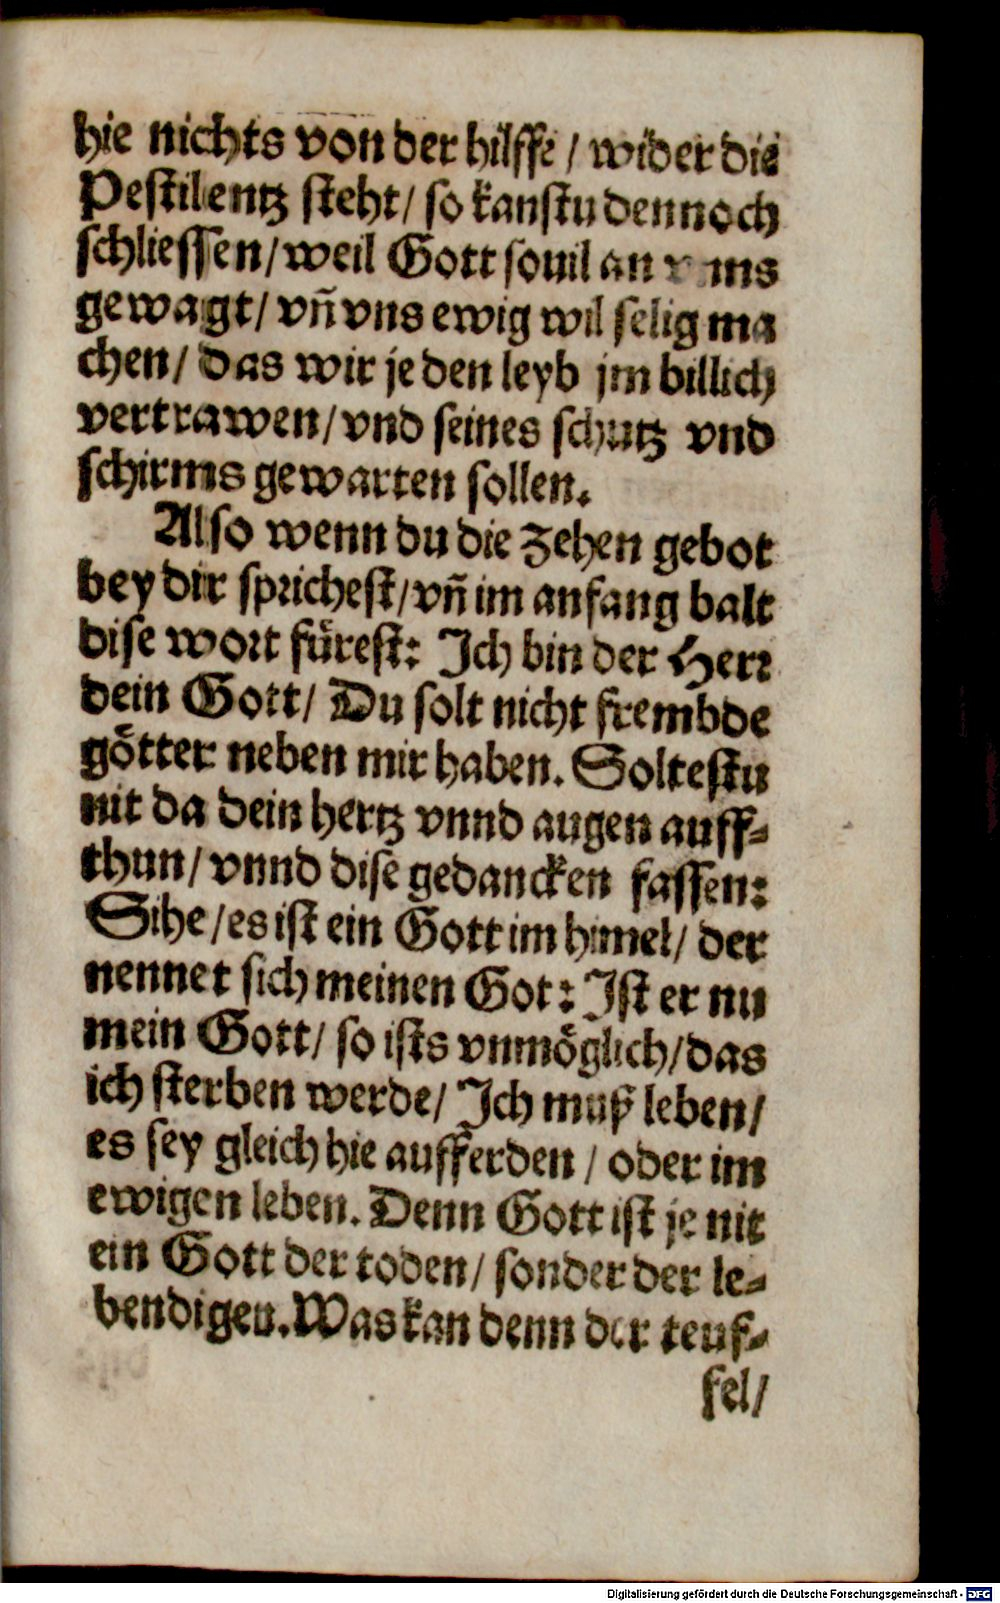 hie nichts von der hilffe / wider die
Pestilentz steht/ so kanstu dennoch
schliessen/ weil Gott souil an vnns
gewagt/ vñ vns ewig wil selig ma
chen/ das wir je den leyb jm billich
vertrawen/ vnd seines schutz vnd
schirms gewarten sollen.
Also wenn du die zehen gebot
bey dir sprichest/ vñ im anfang balt
dise wort fürest: Ich bin der Herr
dein Gott/ Du solt nicht frembde
götter neben mir haben. Soltestu
nit da dein hertz vnnd augen auff-
thun/ vnnd dise gedancken fassen:
Sihe/ es ist ein Gott im himel/ der
nennet sich meinen Got: Ist er nu
mein Gott/ so ists vnmöglich/ das
ich sterben werde/ Ich muß leben/
es sey gleich hie aufferden / oder im
ewigen leben. Denn Gott ist je nit
ein Gott der toden/ sonder der le-
bendigen. Was kan denn der teuf-
fel/
Digitalisierung gefördert durch die Deutsche Forschungsgemeinschaft - DFG